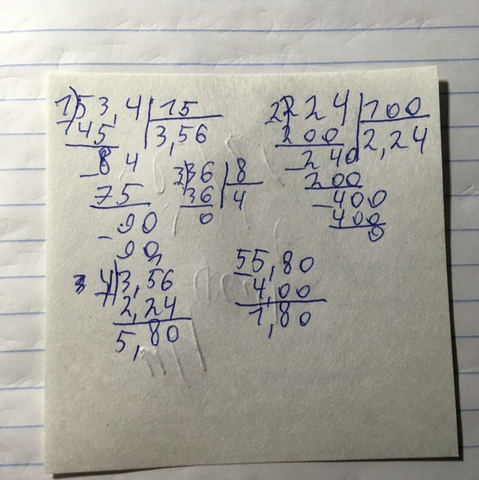 1) 53,4 | 15
45 | 3,56
- 84
75
- 90
90
2) 224 | 100
200 | 2,24
- 240
200
- 400
400
0
3) 36 | 8
36 | 4
0
4) 3,56
2,24
5,80
5) 5,80
4,00
1,80